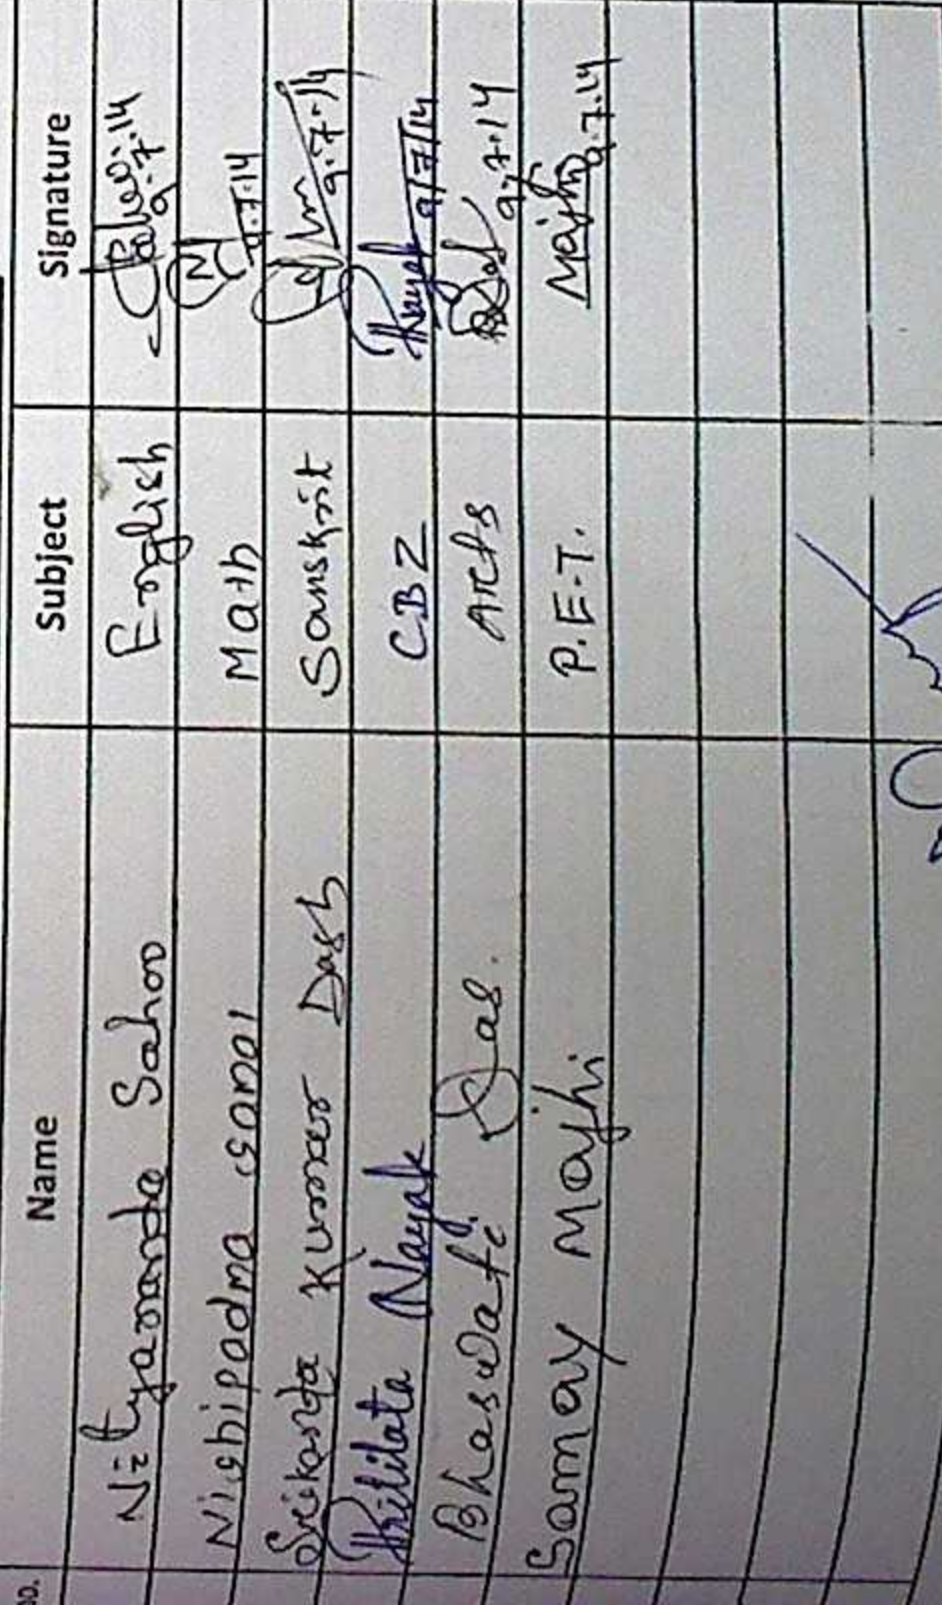 no. Name Subject Signature
Nityananda Sahoo English Sahoo 9.7.14
Nishipadma Samal Math 9.7.14
Srikanta Kumar Dash Sanskrit 9.7.14
Pritilata Nayak CBZ PNayak 9/7/14
Bhaswati Das. Arts Das 9.7.14
Samay Majhi P.E.T. Majhi 9.7.14